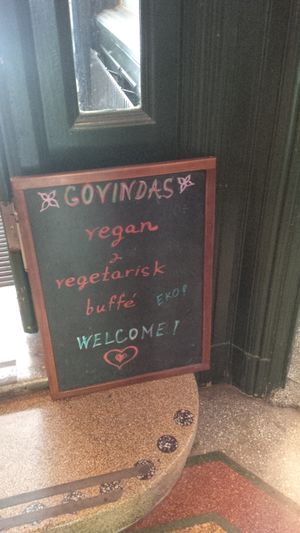 GOVINDAS
vegan
&
vegetarisk
buffé EKO!
WELCOME!